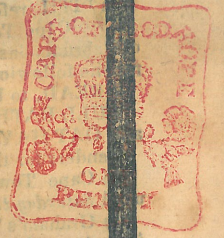 CAPE OF GOOD HOPE
ONE
PENNY